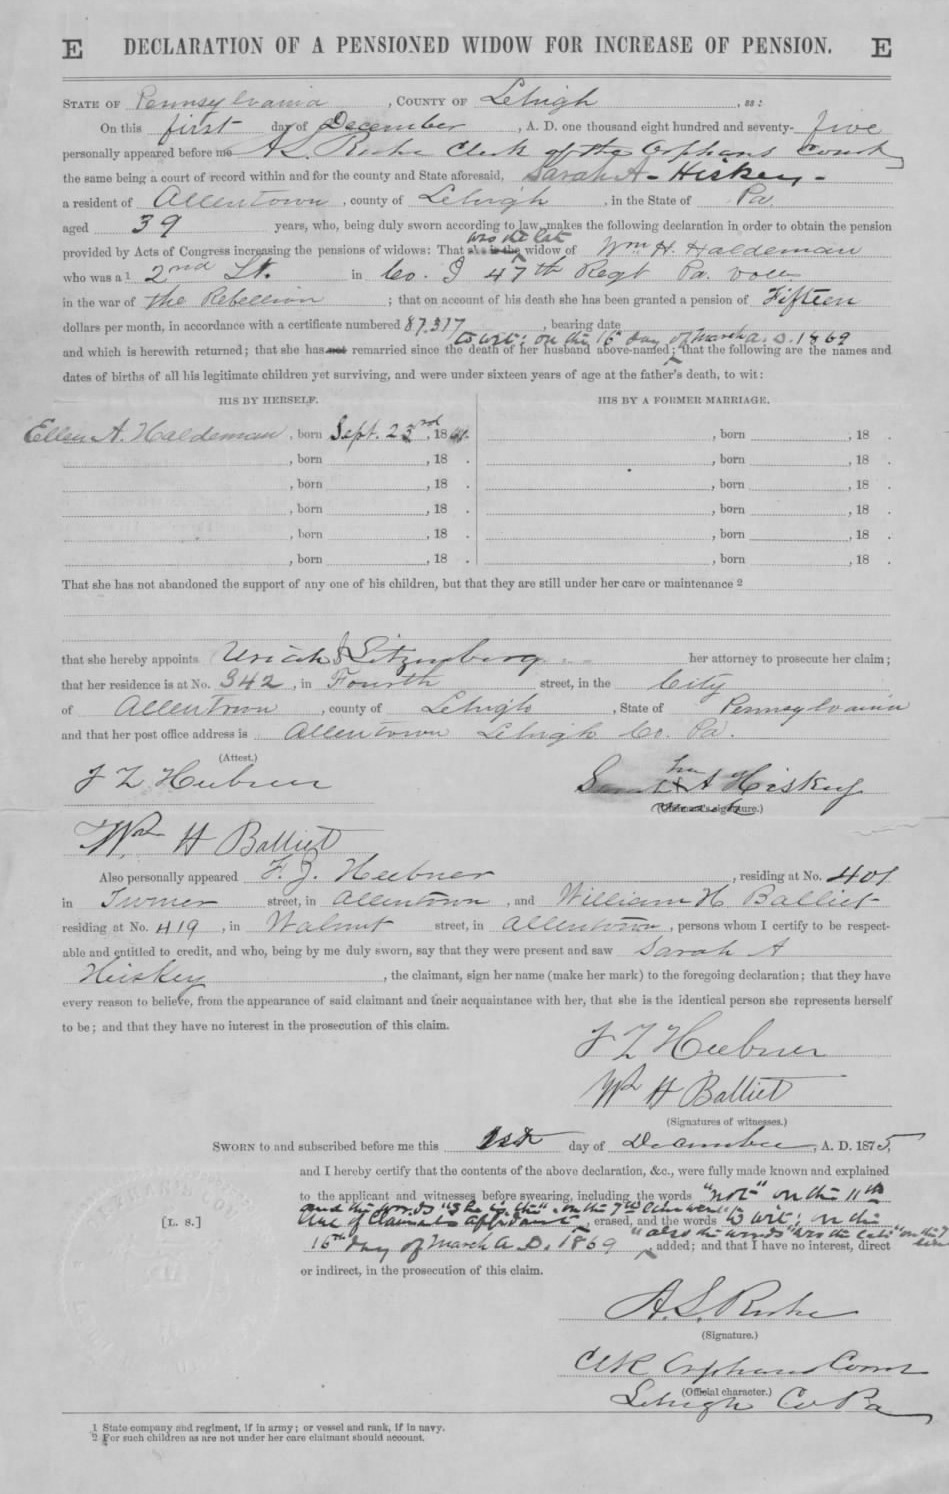 E DECLARATION OF A PENSIONED WIDOW FOR INCREASE OF PENSION. E
STATE OF Pennsylvania, COUNTY OF Lehigh, ss:
On this first day of December, A. D. one thousand eight hundred and seventy-five
personally appeared before me A S. Clerk of the Orphans Court
the same being a court of record within and for the county and State aforesaid, Sarah A. Hiskey -
a resident of Allentown, county of Lehigh, in the State of Pa.
aged 39 years, who, being duly sworn according to law, makes the following declaration in order to obtain the pension
was the late
provided by Acts of Congress increasing the pensions of widows: That she is the widow of Wm H. Haldeman
who was a 1 2nd Lt. in Co. I 47th Regt Pa. Vols
in the war of the Rebellion; that on account of his death she has been granted a pension of Fifteen
dollars per month, in accordance with a certificate numbered 87.317, bearing date
to wit: on the 16th day of March A. D. 1869
and which is herewith returned; that she has not remarried since the death of her husband above-named; that the following are the names and
dates of births of all his legitimate children yet surviving, and were under sixteen years of age at the father's death, to wit:
HIS BY HERSELF. HIS BY A FORMER MARRIAGE.
Ellen A. Haldeman, born Sept. 23rd, 1861. , born , 18 .
, born , 18 . , born , 18 .
, born , 18 . , born , 18 .
, born , 18 . , born , 18 .
, born , 18 . , born , 18 .
, born , 18 . , born , 18 .
That she has not abandoned the support of any one of his children, but that they are still under her care or maintenance 2
that she hereby appoints Uriah S Litzenberg her attorney to prosecute her claim;
that her residence is at No. 342, in Fourth street, in the City
of Allentown, county of Lehigh, State of Pennsylvania
and that her post office address is Allentown Lehigh Co. Pa.
(Attest.)
F Z Heebner
her
Sarah A Hiskey
mark
(Claimant's signature.)
Wm H Balliet
Also personally appeared F. Z. Heebner, residing at No. 401
in Turner street, in Allentown, and William H Balliet
residing at No. 419, in Walnut street, in Allentown, persons whom I certify to be respect-
able and entitled to credit, and who, being by me duly sworn, say that they were present and saw Sarah A
Hiskey, the claimant, sign her name (make her mark) to the foregoing declaration; that they have
every reason to believe, from the appearance of said claimant and their acquaintance with her, that she is the identical person she represents herself
to be; and that they have no interest in the prosecution of this claim.
F Z Heebner
Wm H Balliet
(Signatures of witnesses.)
SWORN to and subscribed before me this 1st day of December, A. D. 1875,
and I hereby certify that the contents of the above declaration, &c., were fully made known and explained
to the applicant and witnesses before swearing, including the words "not" on the 11th
and the words "she is the" on the 7th
[L. S.] line of Claimants affidavit, erased, and the words "to wit: on the
"also the words "was the late" on the 7
16th day of March A. D. 1869, added; and that I have no interest, direct
line
or indirect, in the prosecution of this claim.
A. S.
(Signature.)
Clk Orphans Court
(Official character.)
Lehigh Co Pa
1 State company and regiment, if in army; or vessel and rank, if in navy.
2 For such children as are not under her care claimant should account.